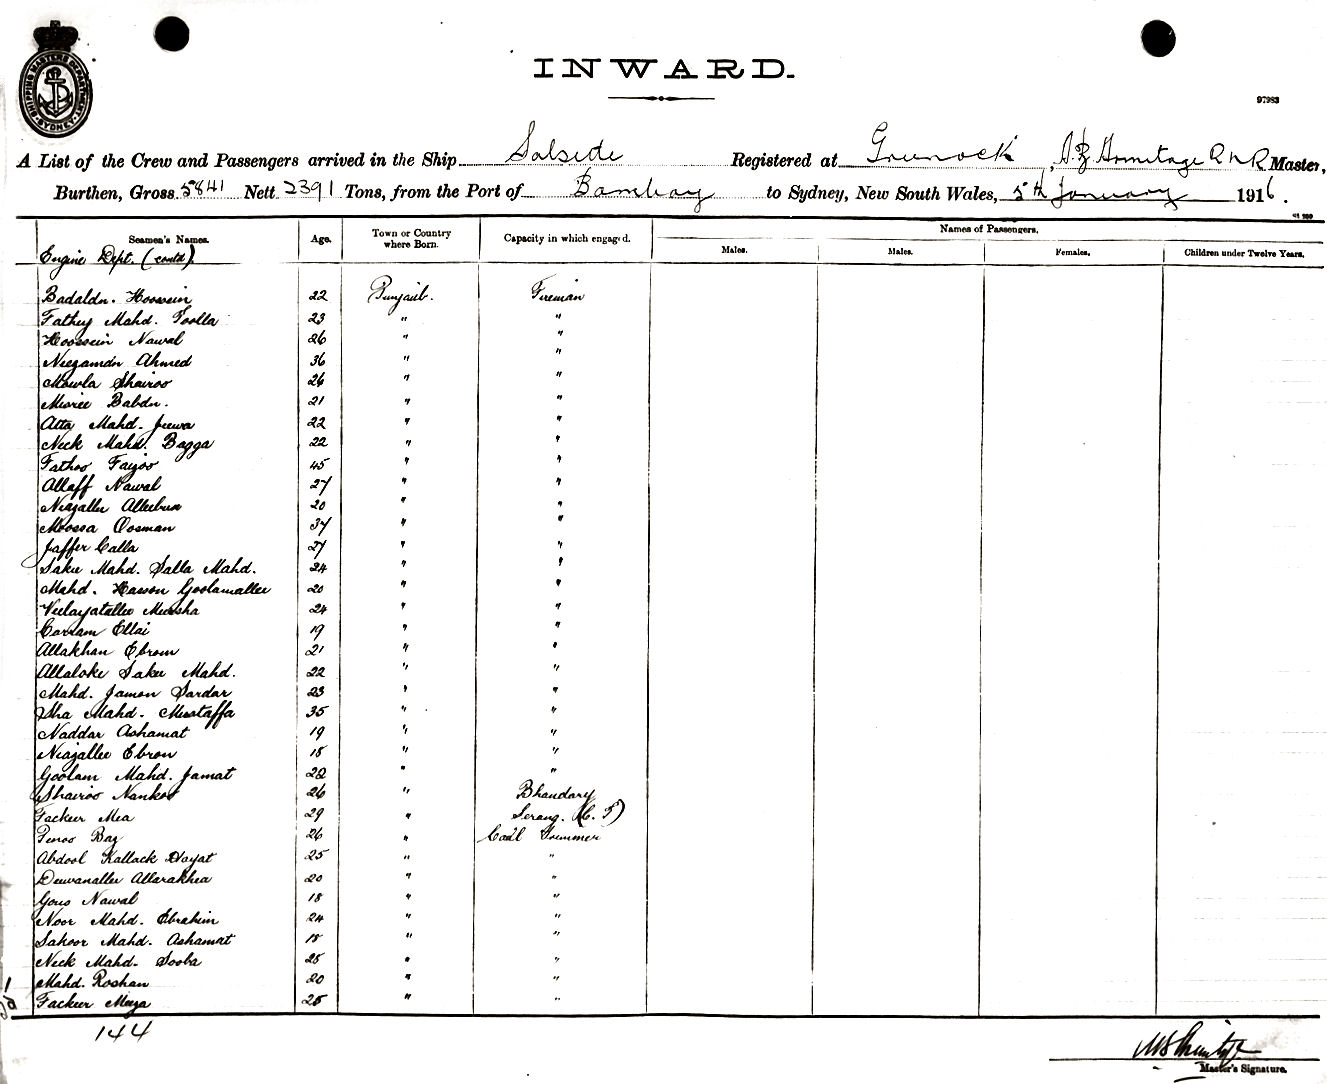 SHIPPING MASTERS DEPARTMENT SYDNEY
INWARD.
97983
A List of the Crew and Passengers arrived in the Ship Salsede Registered at Greenock, A.Z. Hormitage R N R Master,
Burthen, Gross 5841 Nett 2391 Tons, from the Port of Bombay to Sydney, New South Wales, 5th January 1916.
Seamen's Names. Age. Town or Country where Born. Capacity in which engaged. Names of Passengers.
Males. Males. Females. Children under Twelve Years.
Engine Dept. (contd)
Badaldn. Hoosein 22 Punjaub. Fireman
Fathey Mahd. Foolla 23 " "
Hoossein Nawal 26 " "
Neezamdn Ahmed 36 " "
Mowla Shairoo 26 " "
Misree Babdn. 21 " "
Atta Mahd. Jeewa 22 " "
Neck Mahd. Bagga 22 " "
Fathoo Fazoo 45 " "
Allaff Nawal 27 " "
Niazallee 20 " "
Moossa Oosman 37 " "
Jaffer Calla 27 " "
Saku Mahd. Salla Mahd. 24 " "
Mahd. Hasson Goolamallee 20 " "
Veelayatallee Meersha 24 " "
Carram Ellai 19 " "
Allakhan Ebrom 21 " "
Allaloke Saku Mahd. 22 " "
Mahd. Jamon Sardar 23 " "
Sha Mahd. Mustaffa 35 " "
Naddar Ashamat 19 " "
Niazallee Ebron 18 " "
Goolam Mahd. Jamat 22 " "
Shairoo Nankoo 26 " Bhandary
Fackeer Mea 29 " Serang. (C. T)
Feroo Baz 26 " Coal Trimmer
Abdool Kallack Hayat 25 " "
Dewanallee Allarakhea 20 " "
Gous Nawal 18 " "
Noor Mahd. Ebrahim 24 " "
Sahoor Mahd. Ashamat 18 " "
Neck Mahd. Sooba 25 " "
Mahd. Roshan 20 " "
Fackeer Meeza 25 " "
144
Master's Signature.